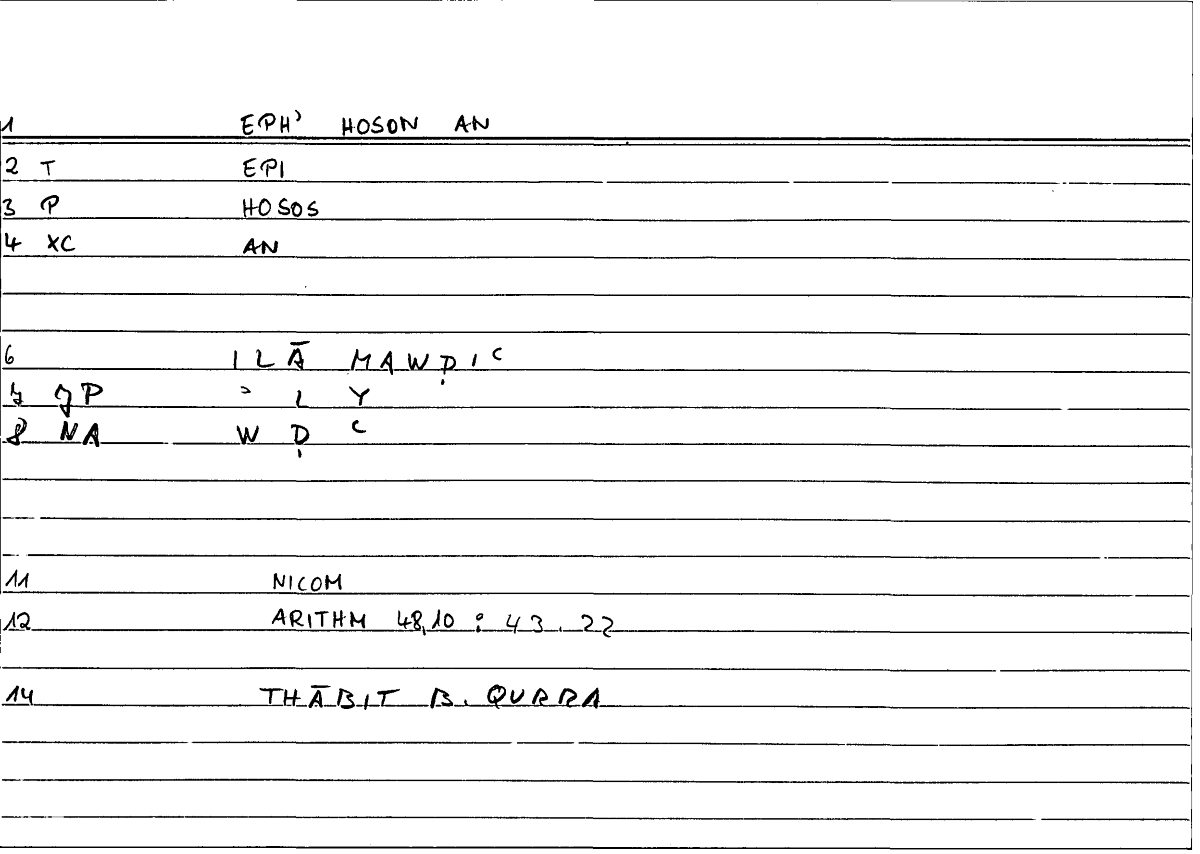 1 EPH' HOSON AN
2 T EPI
3 P HOSOS
4 XC AN
6 ILĀ MAWḌIʿ
7 JP ʾ L Y
8 NA W Ḍ ʿ
11 NICOM
12 ARITHM 48,10 : 43.22
14 THĀBIT B. QURRA